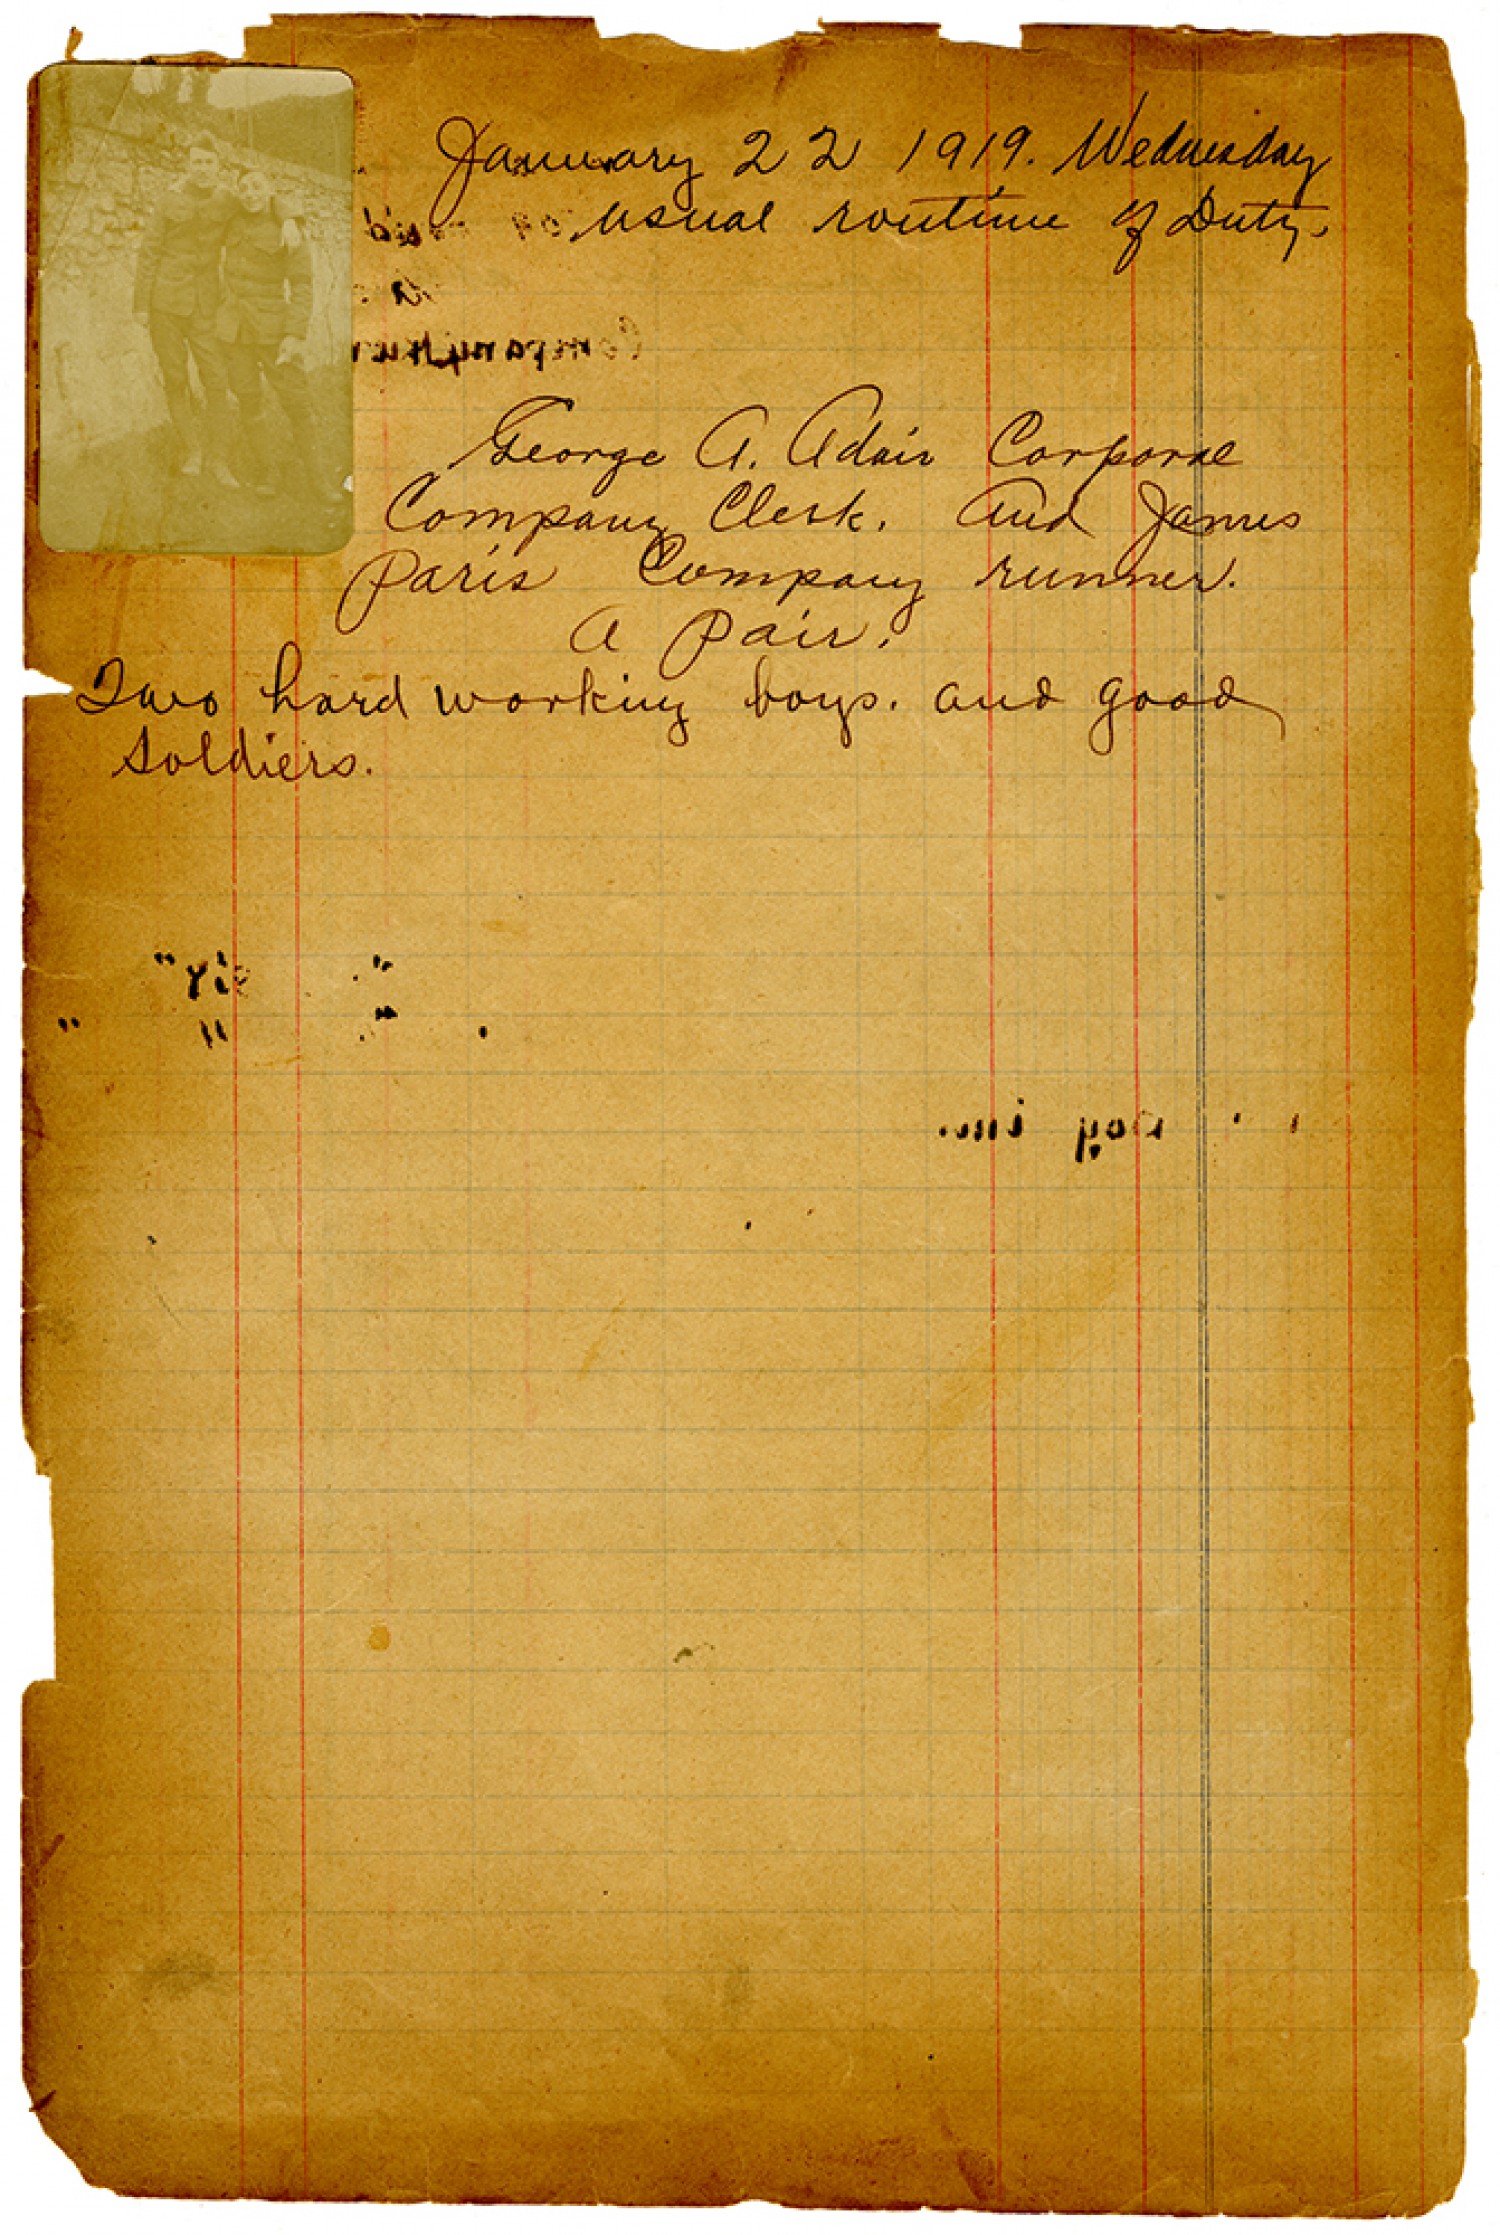 January 22 1919. Wednesday
usual routine of Duty.
Company
George A. Adair Corporal
Company Clerk. And James
Paris Company runner.
A Pair.
Two hard working boys. and good
soldiers.